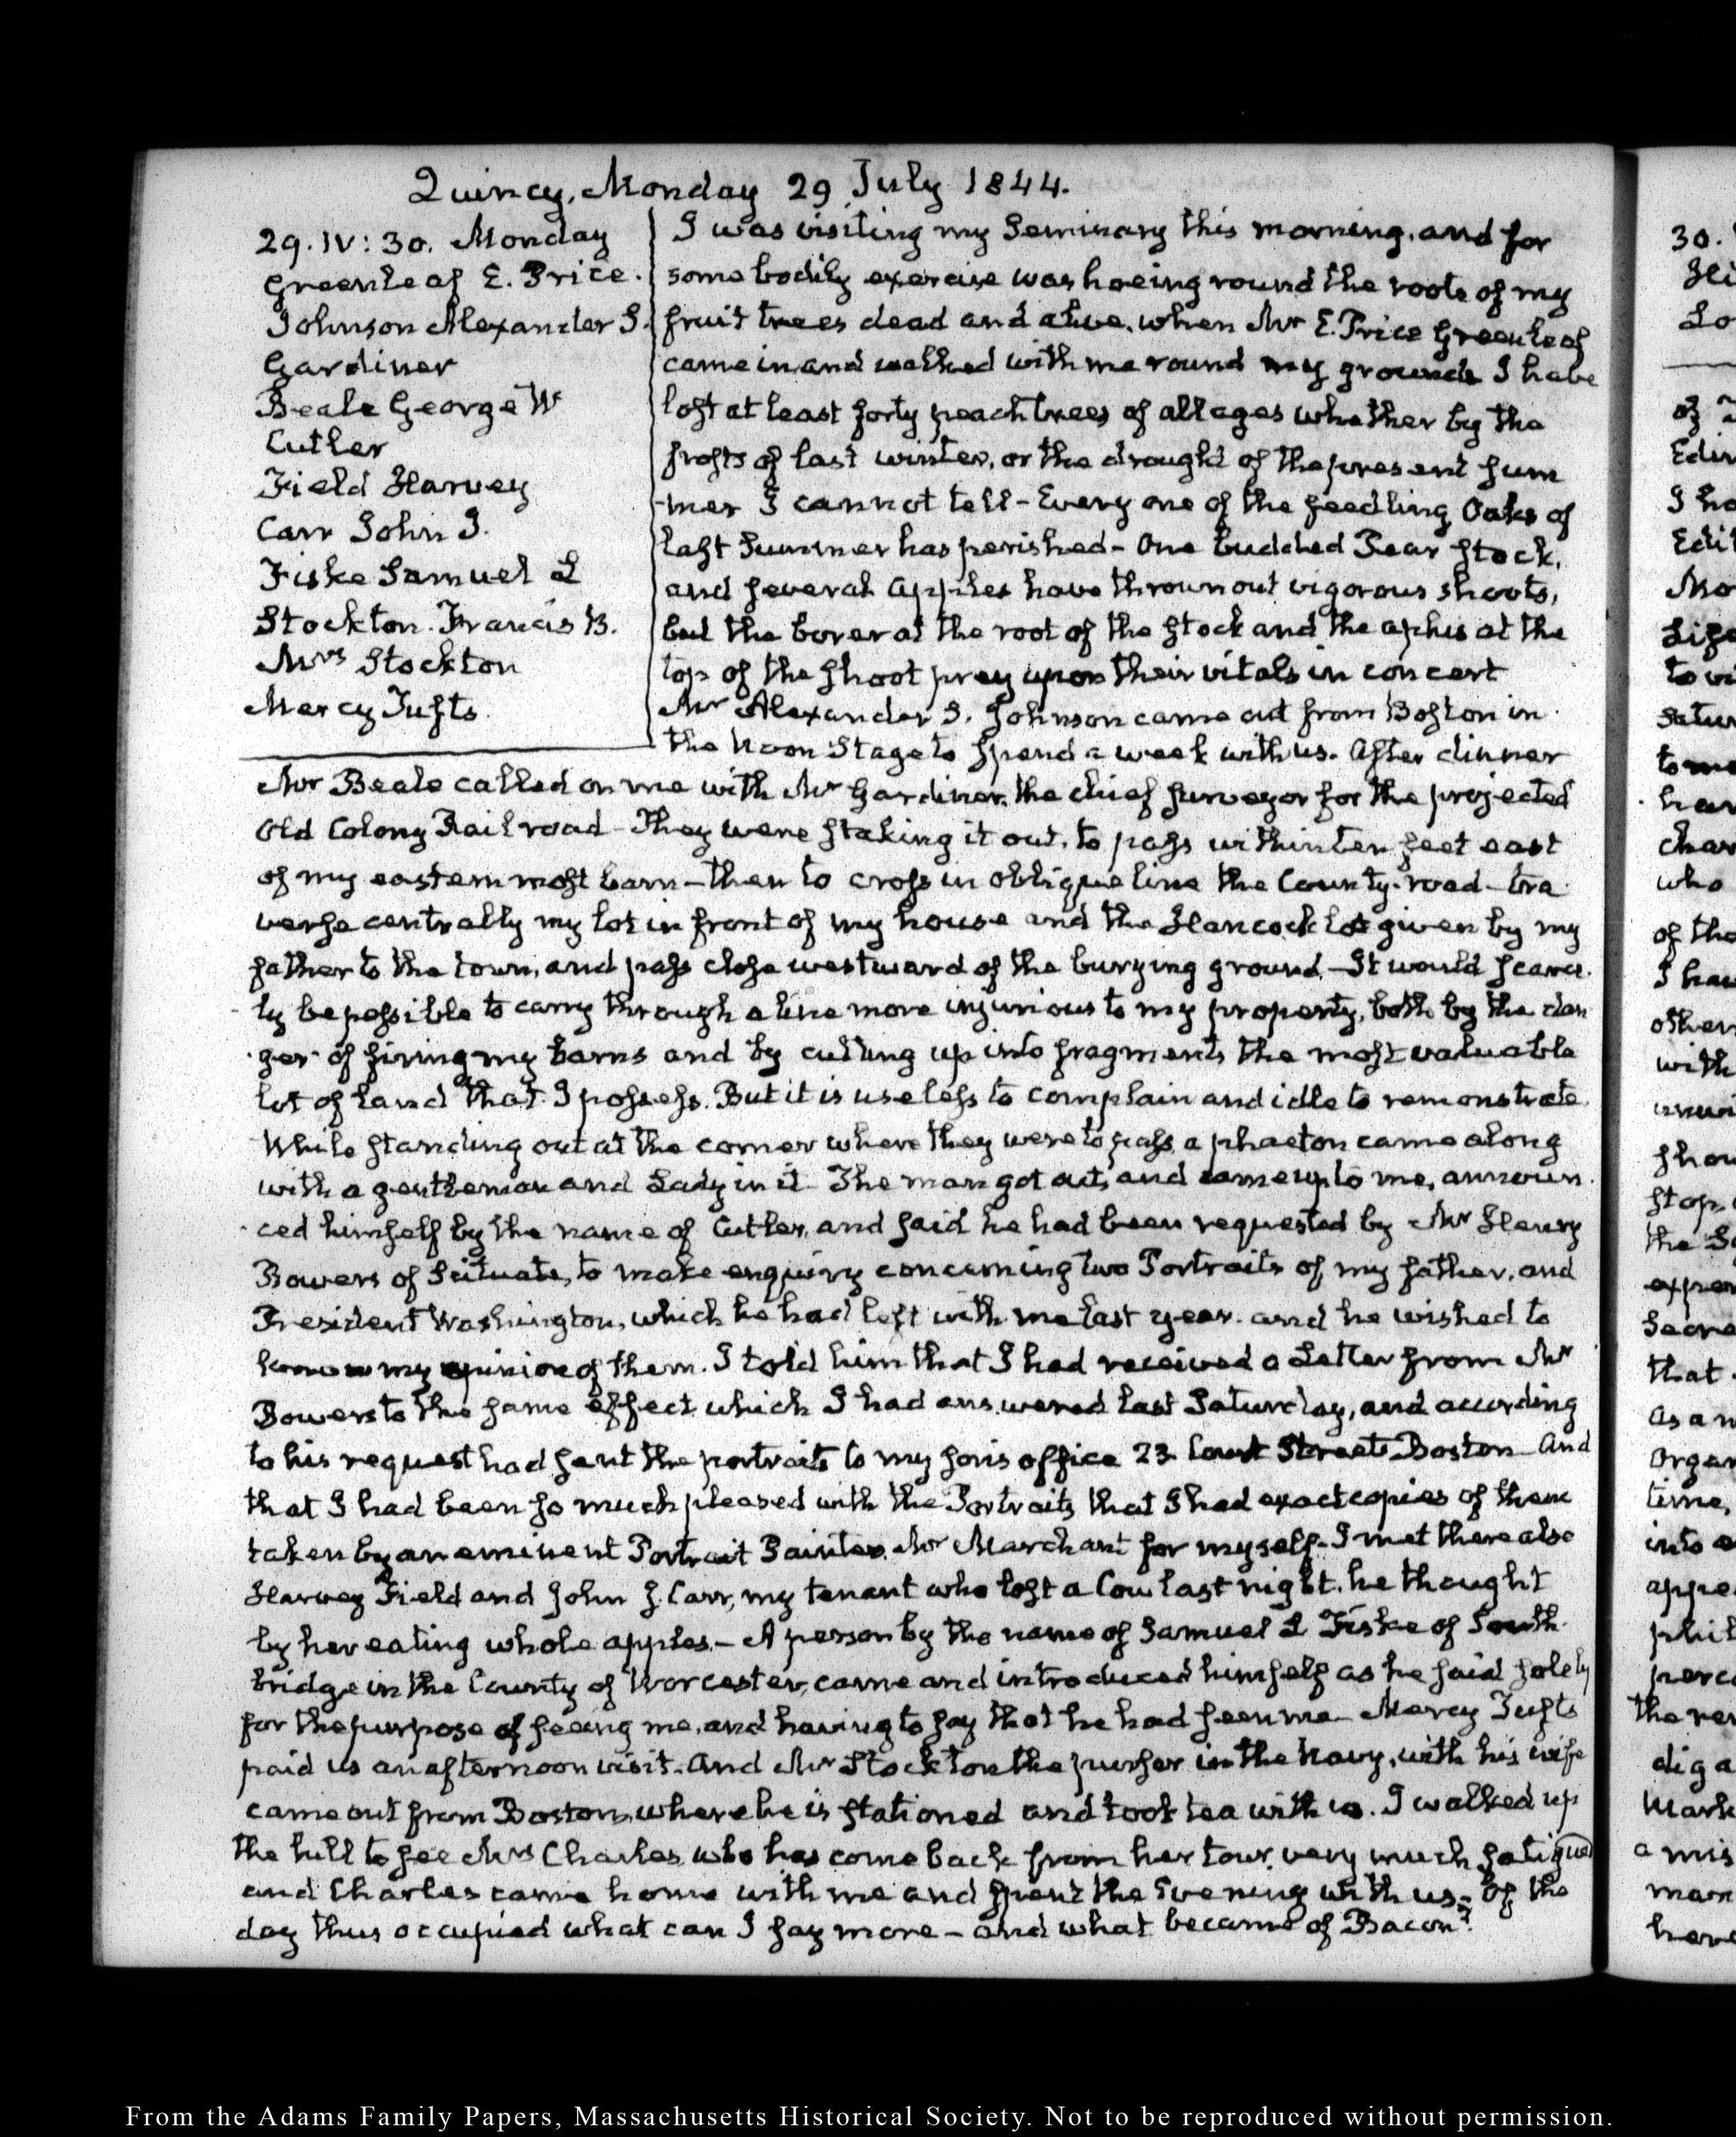 Quincy, Monday 29 July 1844.
29. IV: 30. Monday
Greenleaf E. Price.
Johnson Alexander S.
Gardiner
Beale George W
Cutler
Field Harvey
Carr John J.
Fiske Samuel L
Stockton. Francis B.
Mrs Stockton
Mercy Tufts.
I was visiting my Seminary this morning, and for
some bodily exercise was hoeing round the roots of my
fruit trees dead and alive, when Mr E. Price Greenleaf
came in and walked with me round my grounds I have
lost at least forty peach trees of all ages whether by the
frosts of last winter, or the drought of the present sum
-mer I cannot tell - Every one of the seedling Oaks of
last Summer has perished - One budded Pear stock,
and several Apples have thrown out vigorous shoots,
but the borer at the root of the stock and the aphis at the
top of the shoot prey upon their vitals in concert
Mr Alexander S. Johnson came out from Boston in
the Noon Stage to spend a week with us. After dinner
Mr Beale called on me with Mr Gardiner, the chief surveyor for the projected
Old Colony Rail road - They were staking it out, to pass within ten feet east
of my easternmost barn - then to cross in oblique line the County-road - tra
verse centrally my lot in front of my house and the Hancock lot given by my
father to the town, and pass close westward of the burying ground - It would scarce
ly be possible to carry through a line more injurious to my property, both by the dan
-ger of firing my barns and by cutting up into fragments the most valuable
lot of land that I possess. But it is useless to complain and idle to remonstrate
While standing out at the corner where they were to pass a phaeton came along
with a gentleman and Lady in it - The man got out, and came up to me, announ
-ced himself by the name of Cutler, and said he had been requested by Mr Henry
Bowers of Scituate, to make enquiry concerning two Portraits of my father, and
President Washington, which he had left with me last year. and he wished to
know my opinion of them. I told him that I had received a Letter from Mr
Bowers to the same effect which I had answered last Saturday, and according
to his request had sent the portraits to my son's office 23 Court Street Boston - And
that I had been so much pleased with the Portraits that I had exact copies of them
taken by an eminent Portrait Painter, Mr Marchant for myself - I met there also
Harvey Field and John J. Carr, my tenant who lost a Cow last night, he thought
by her eating whole apples. - A person by the name of Samuel L Fiske of South
bridge in the County of Worcester, came and introduced himself as he said solely
for the purpose of seeing me, and having to say that he had seen me - Mercy Tufts
paid us an afternoon visit. And Mr Stockton the purser in the Navy, with his wife
came out from Boston, where he is stationed and took tea with us. I walked up
the hill to see Mrs Charles, who has come back from her tour, very much fatigued
and Charles came home with me and spent the Evening with us - Of the
day thus occupied what can I say more - and what became of Bacon?
From the Adams Family Papers, Massachusetts Historical Society. Not to be reproduced without permission.